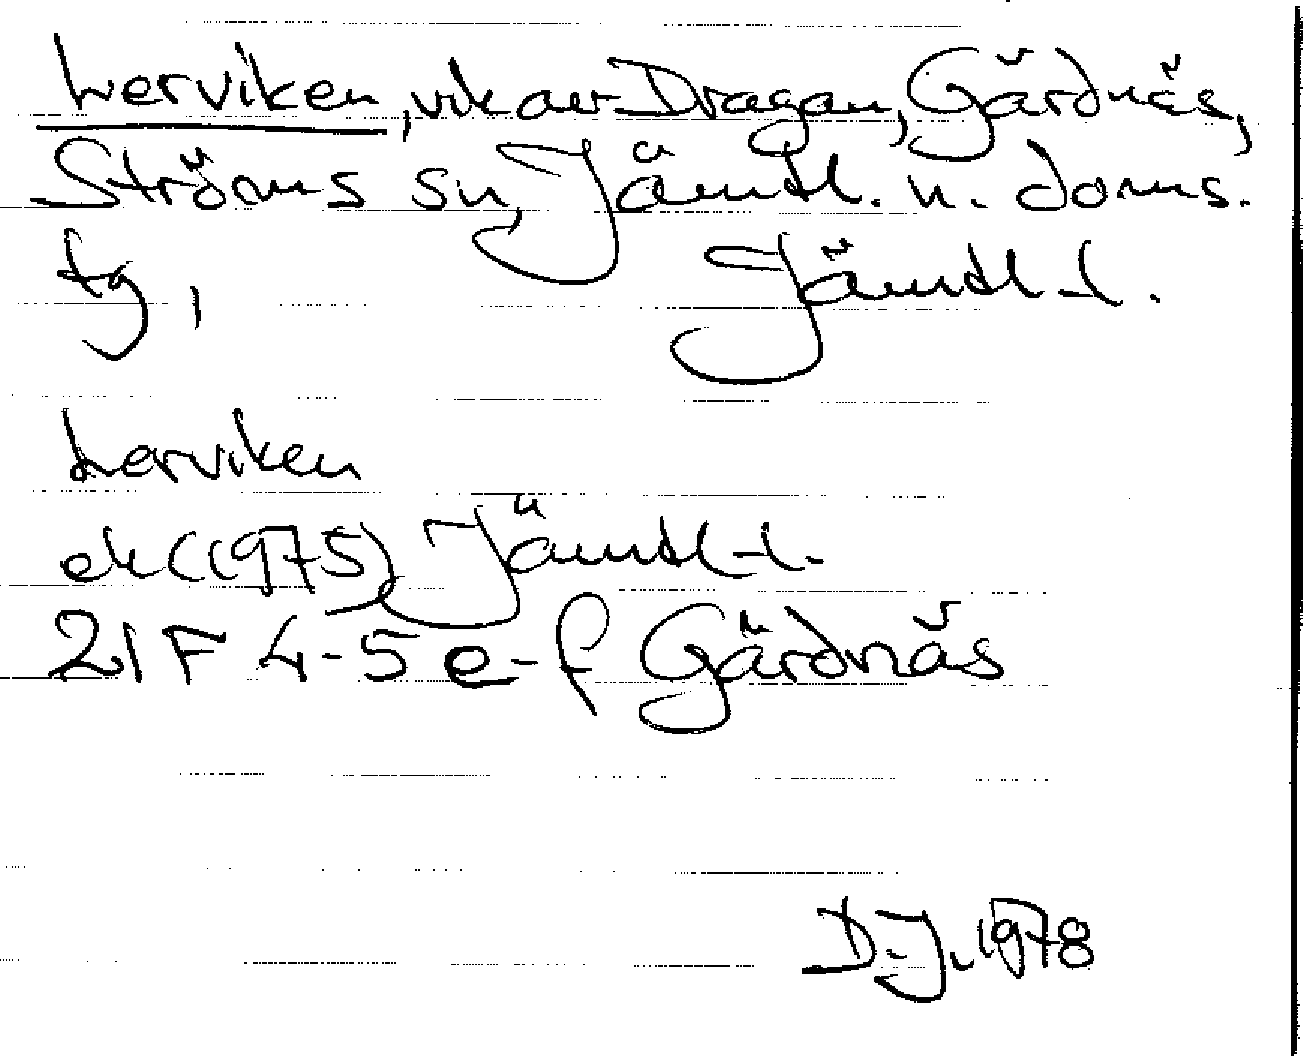 Lerviken, vik av Dragan, Gärdnäs,
Ströms sn, Jämtl. n. doms.
tg, Jämtl. l.
Lerviken
ek (1975) Jämtl. l.
21 F 4-5 e-f Gärdnäs
D.J. 1978